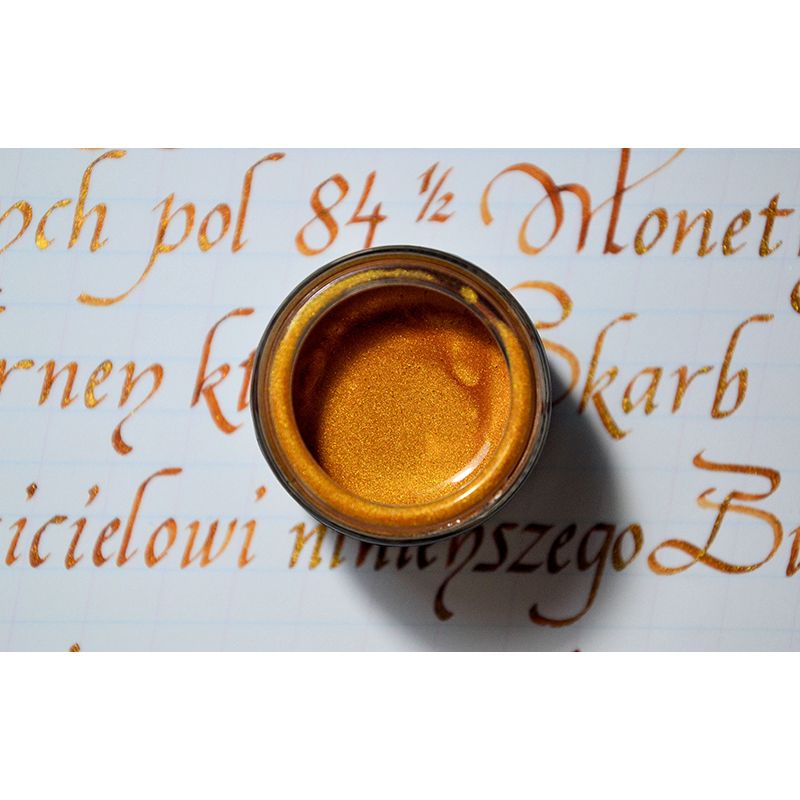 ych pol 84 ½ Monet
rney Skarb
icielowi ninieyszego